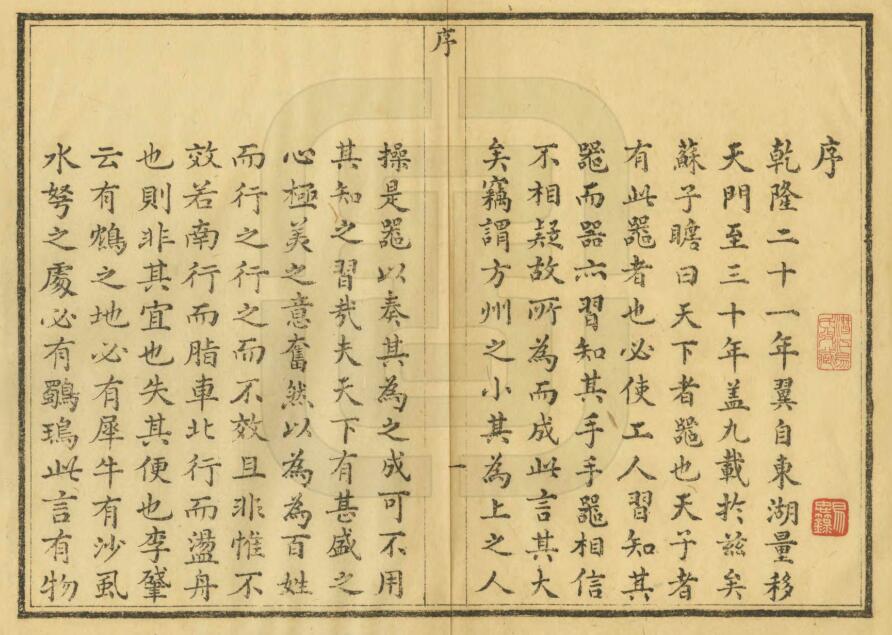 序
乾隆二十一年翼自東湖量移
天門至三十年盖九載扵兹矣
蘇子瞻曰天下者噐也天子者
有此噐者也必使工人習知其
噐而器亦習知其手手噐相信
不相疑故所為而成此言其大
矣竊謂方州之小其為上之人
序
一
操是噐以奏其為之成可不用
其知之習㢤夫天下有甚盛之
心極美之意奮然以為為百姓
而行之行之而不效且非惟不
效若南行而脂車北行而盪舟
也則非其宜也失其便也李肇
云有鴆之地必有犀牛有沙虱
水弩之處必有鸀鳿此言有物